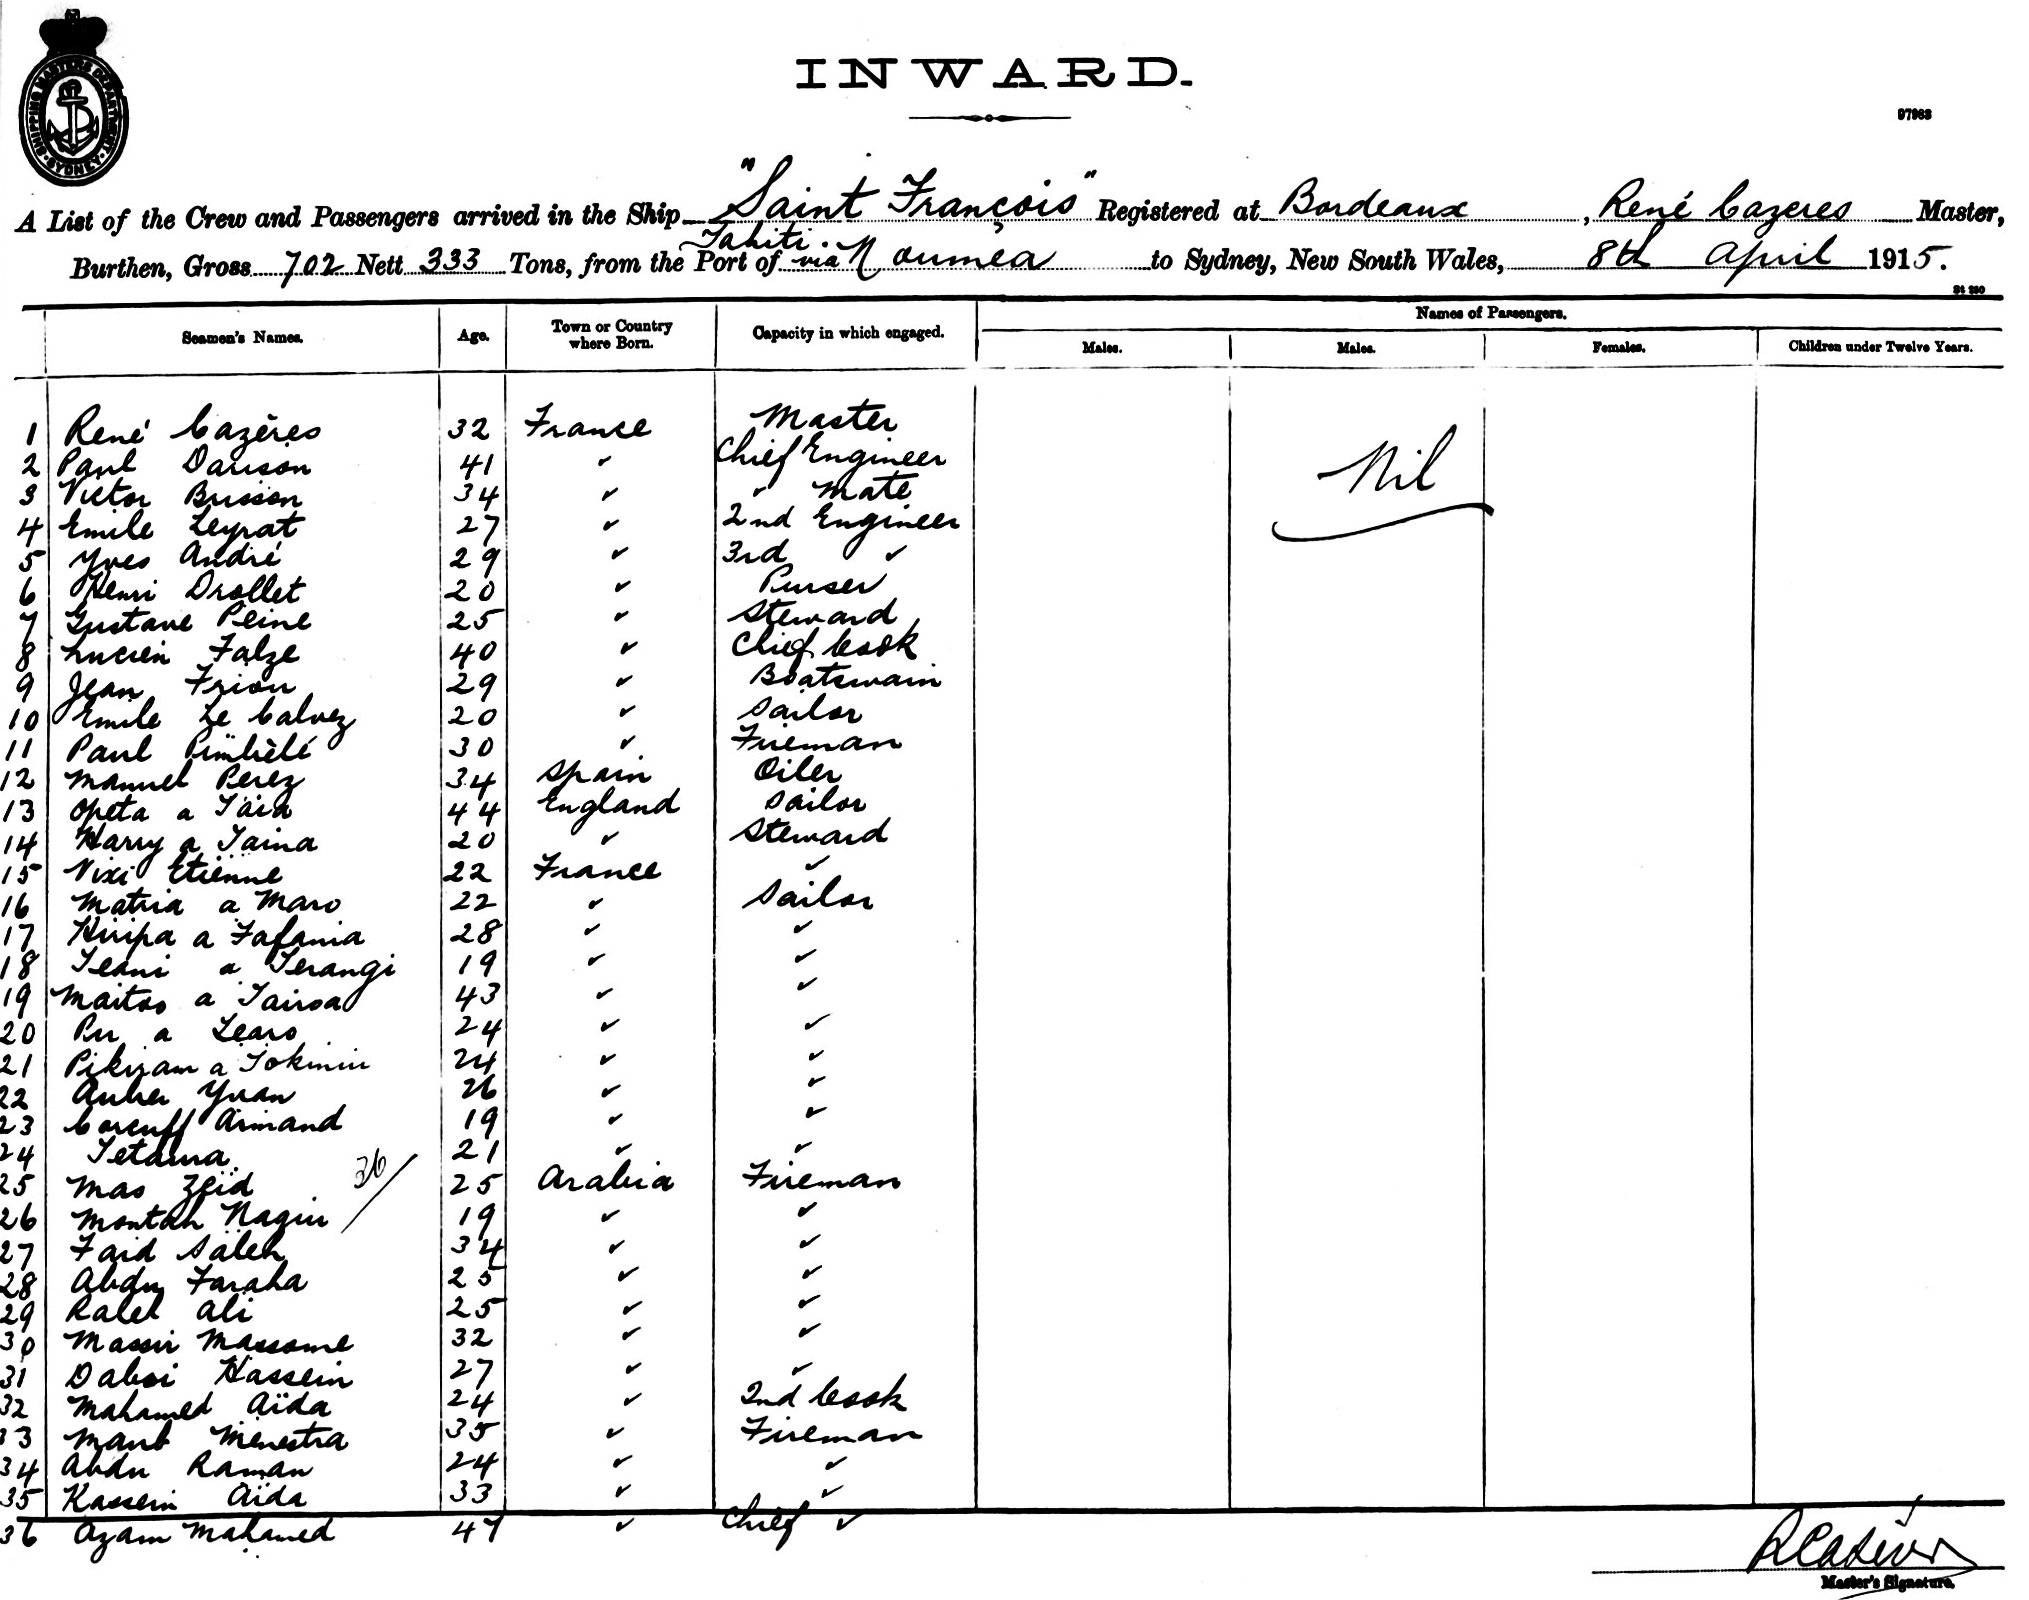 SHIPPING MASTERS DEPARTMENT. SYDNEY.
INWARD.
97963
A List of the Crew and Passengers arrived in the Ship "Saint François" Registered at Bordeaux, René Cazeres Master,
Burthen, Gross 702 Nett 333 Tons, from the Port of Tahiti. via Noumea to Sydney, New South Wales, 8th April 1915.
Seamen's Names. Age. Town or Country where Born. Capacity in which engaged. Names of Passengers.
Males. Males. Females. Children under Twelve Years.
Nil
1 René Cazères 32 France Master
2 Paul 41 " Chief Engineer
3 Victor Busson 34 " " Mate
4 Emile Leyrat 27 " 2nd Engineer
5 Yves André 29 " 3rd "
6 Henri Drollet 20 " Purser
7 Gustave Peine 25 " Steward
8 Lucien Falze 40 " Chief Cook
9 Jean Friou 29 " Boatswain
10 Emile Le Calvez 20 " Sailor
11 Paul 30 " Fireman
12 Manuel Perez 34 Spain Oiler
13 Opeta a Taia 44 England Sailor
14 Harry a Taina 20 " Steward
15 Vixi Etienne 22 France "
16 a Maro 22 " Sailor
17 Hiripa a Fafania 28 " "
18 Teani a Terangi 19 " "
19 Maitoo a Tairoa 43 " "
20 Pu a Learo 24 " "
21 a 24 " "
22 Yvan 26 " "
23 Corcuff Armand 19 " "
24 21 " "
25 Mas Zeid 25 Arabia Fireman
36
26 Montah 19 " "
27 Faid Saleh 34 " "
28 Abdu Faraha 25 " "
29 Raleh Ali 25 " "
30 Massir Massome 32 " "
31 Daboi Hassein 27 " "
32 Mahamed Aïda 24 " 2nd Cook
33 Menestra 35 " Fireman
34 Abdu Raman 24 " "
35 Kassein Aïda 33 " "
36 Azam Mahamed 47 " Chief "
Master's Signature.